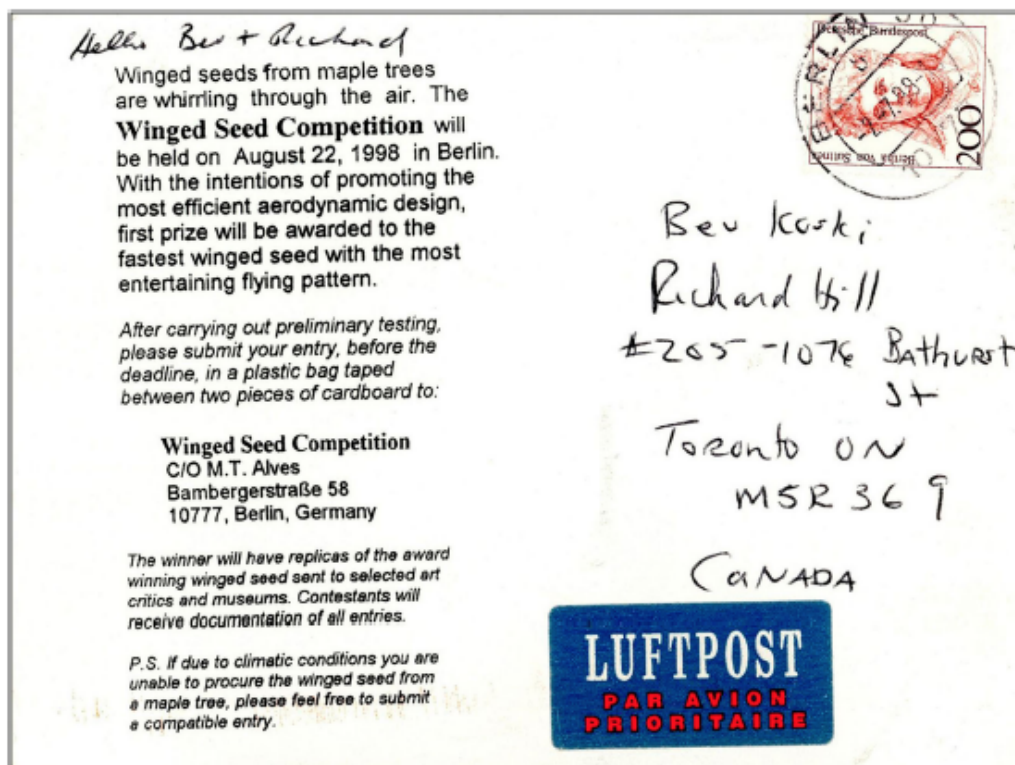 Hello Bev + Richard
Winged seeds from maple trees
are whirrling through the air. The
Winged Seed Competition will
be held on August 22, 1998 in Berlin.
With the intentions of promoting the
most efficient aerodynamic design,
first prize will be awarded to the
fastest winged seed with the most
entertaining flying pattern.
After carrying out preliminary testing,
please submit your entry, before the
deadline, in a plastic bag taped
between two pieces of cardboard to:
Winged Seed Competition
C/O M.T. Alves
Bambergerstraße 58
10777, Berlin, Germany
The winner will have replicas of the award
winning winged seed sent to selected art
critics and museums. Contestants will
receive documentation of all entries.
P.S. If due to climatic conditions you are
unable to procure the winged seed from
a maple tree, please feel free to submit
a compatible entry.
Deutsche Bundespost
200
Bertha von Suttner
BERLIN
Bev Koski
Richard Hill
#205-1076 Bathurst
St
Toronto ON
M5R 3G9
CANADA
LUFTPOST
PAR AVION
PRIORITAIRE